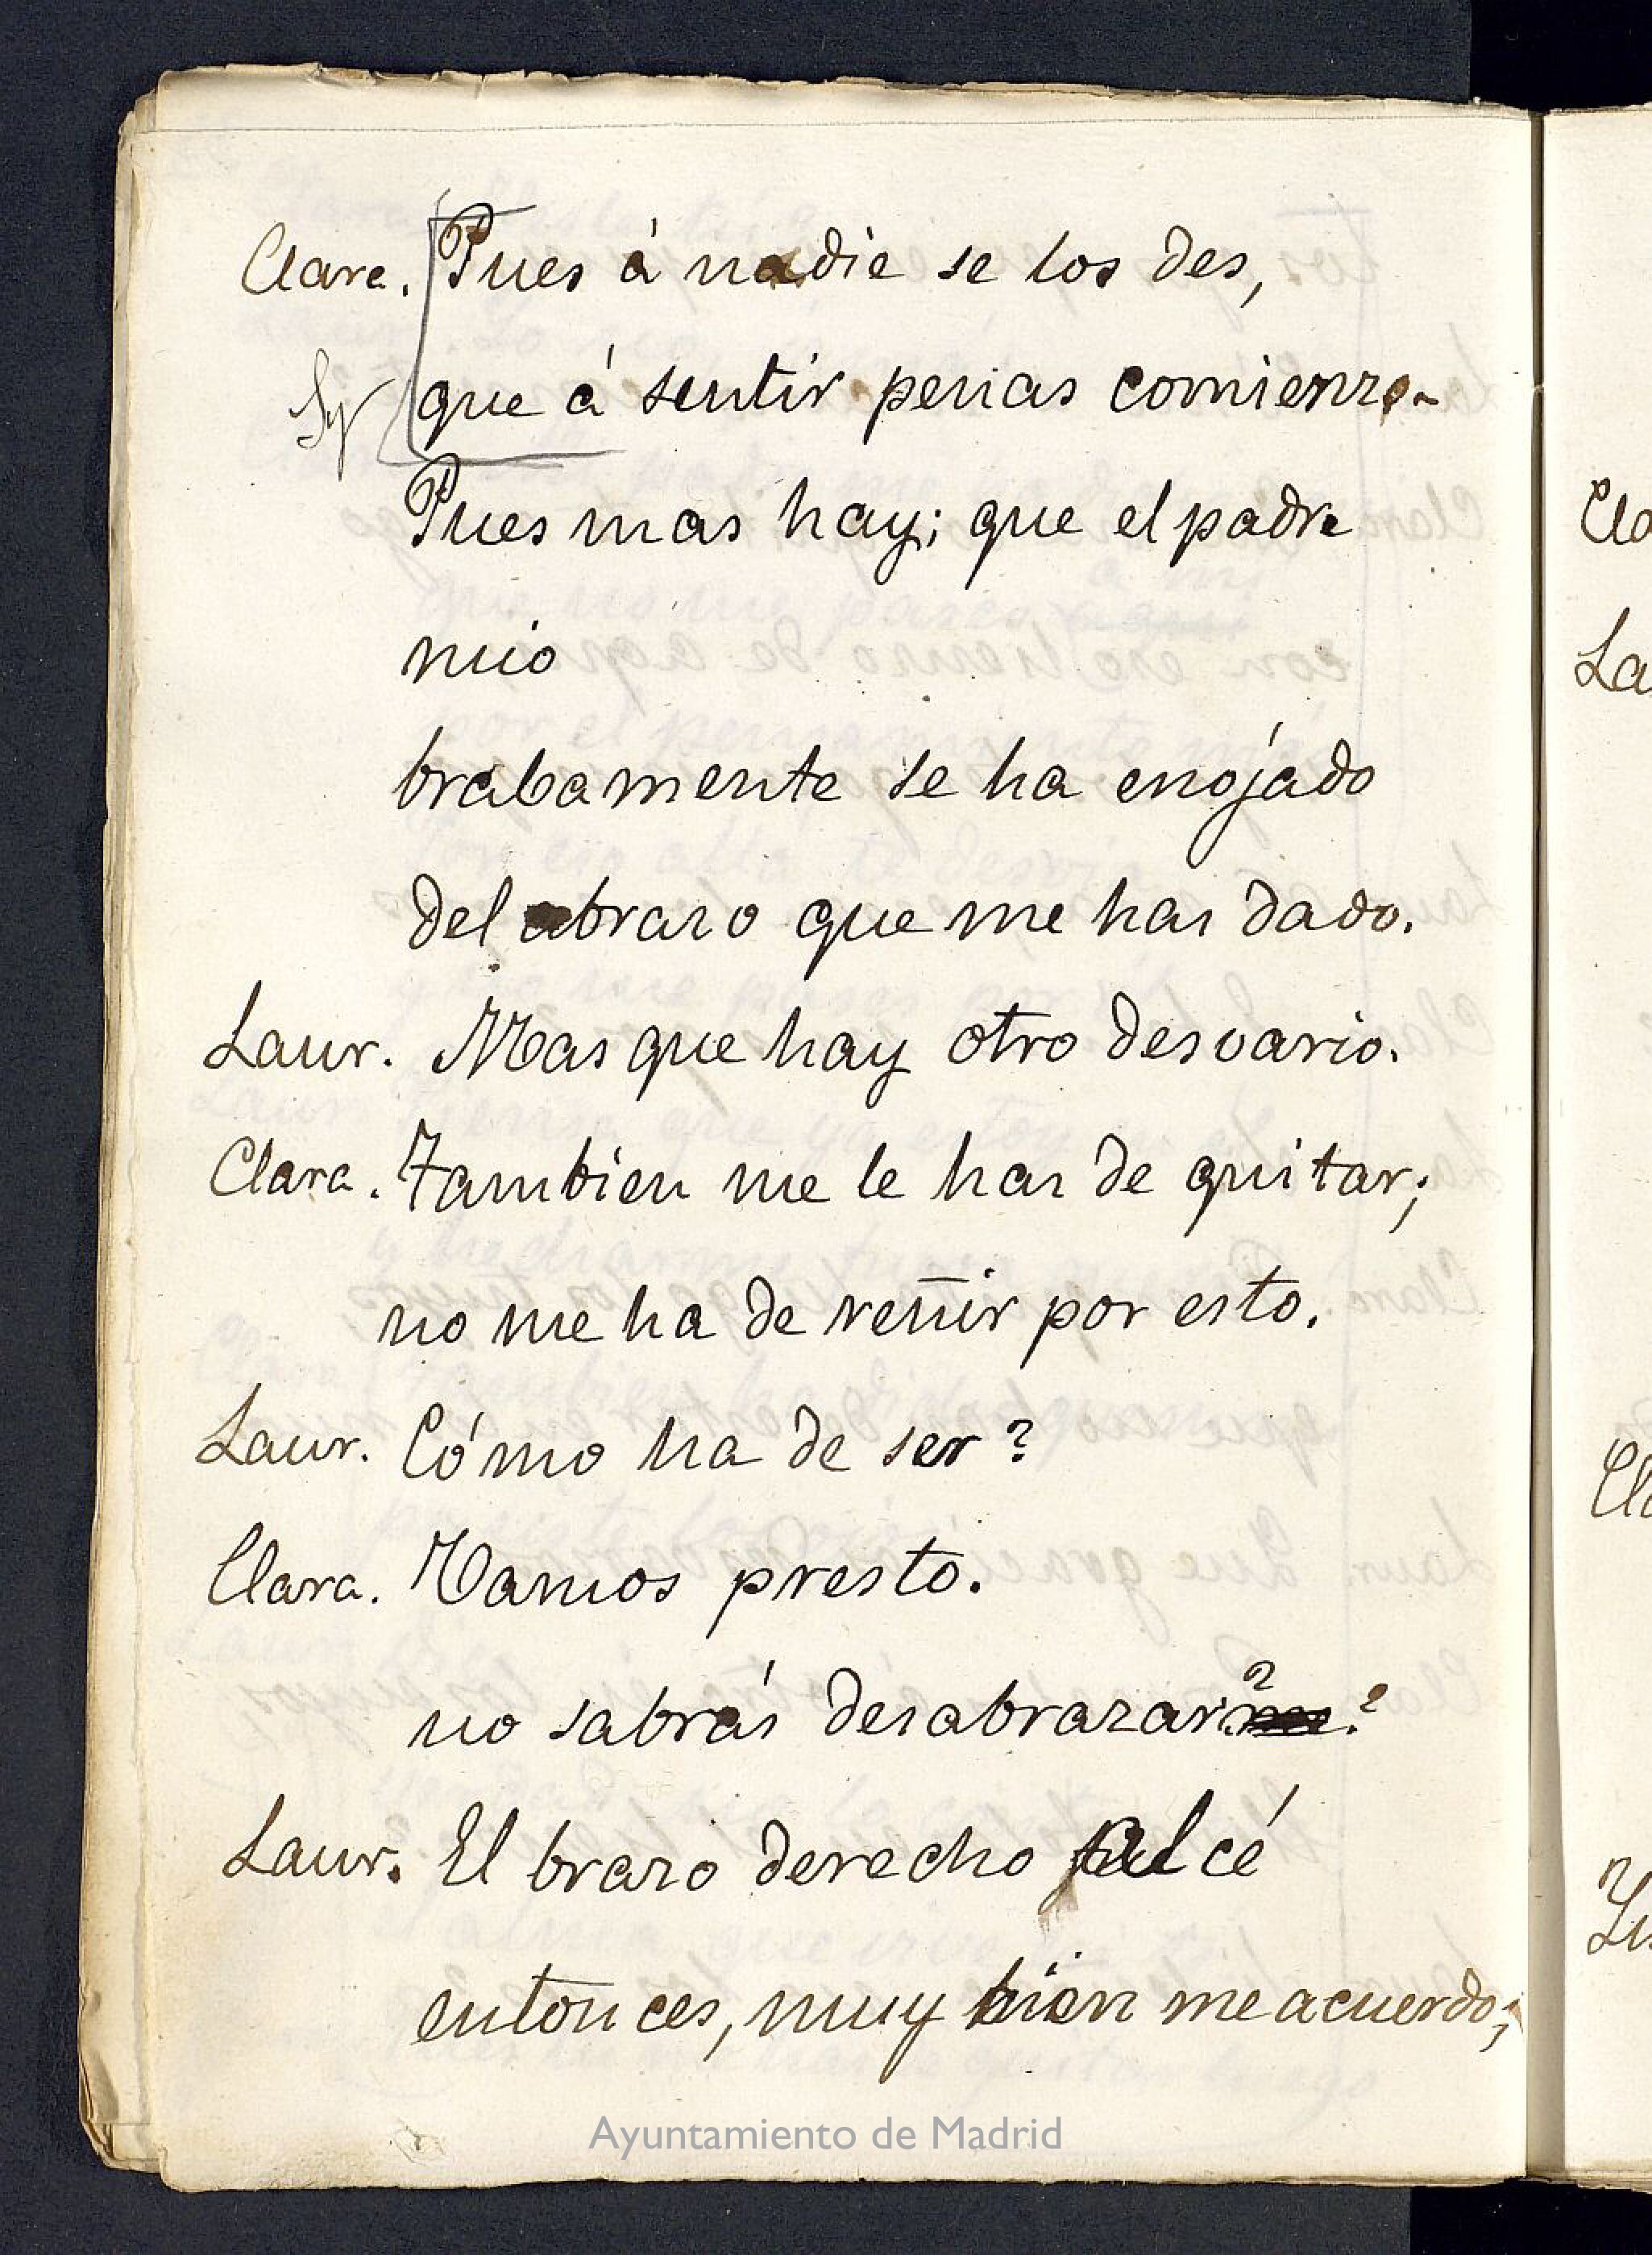 Clara. Pues á nadie se los des,
que á sentir penas comienzo.
Pues mas hay; que el padre
mio
brabamente se ha enojado
del abrazo que me has dado.
Laur. Mas que hay otro desvario.
Clara. Tambien me le has de quitar;
no me ha de reñir por esto.
Laur. Cómo ha de ser?
Clara. Vamos presto.
no sabrás desabrazar?
Laur. El brazo derecho alcé
entonces, muy bien me acuerdo;
Ayuntamiento de Madrid